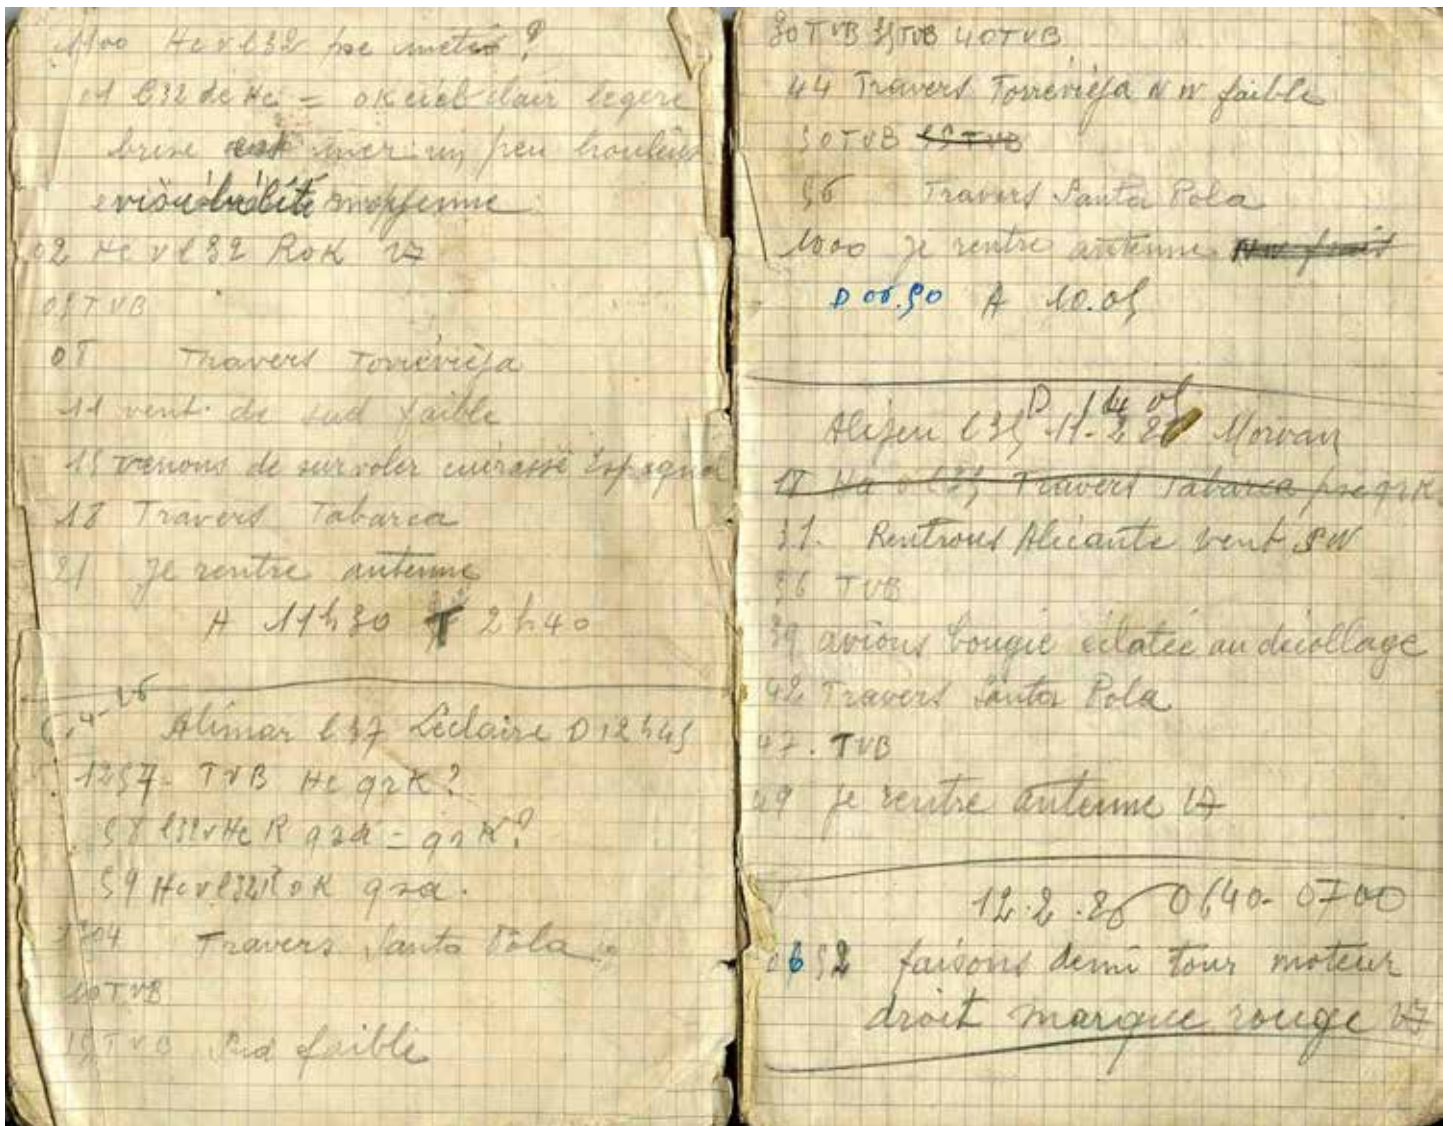 1100 Hc v l32 pse météo ?
01 l32 de Hc = OK ciel clair légère
brise mer un peu houleuse
visibilité moyenne
02 Hc v l32 ROK
05 TVB
08 Travers Torrévièja
11 vent de sud faible
15 venons de survoler cuirassé Espagnol
18 Travers Tabarca
21 je rentre antenne
A 11h30 T 2h40
Alimar l37 Léclaire D 12h45
1257 - TVB Hc qrk ?
58 l32 v Hc R qsa = qrk ?
59 Hc v l32 R OK qsa.
1304 Travers Santa Pola
10 TVB
15 TVB Sud faible
30 TVB 35 TVB 40 TVB
44 Travers Torrévièja NW faible
50 TVB 55 TVB
56 Travers Santa Pola
1000 je rentre antenne
D 06.50 A 10.05
D 14 05
l35 -11-2 26 Morvan
18 Travers Tabarca pse qrk
31. Rentrons Alicante vent SW
36 TVB
39 avions bougie éclatée au décollage
42 Travers Santa Pola
47. TVB
49 je rentre antenne
12.2.26 0640-0700
0652 faisons demi tour moteur
droit marque rouge